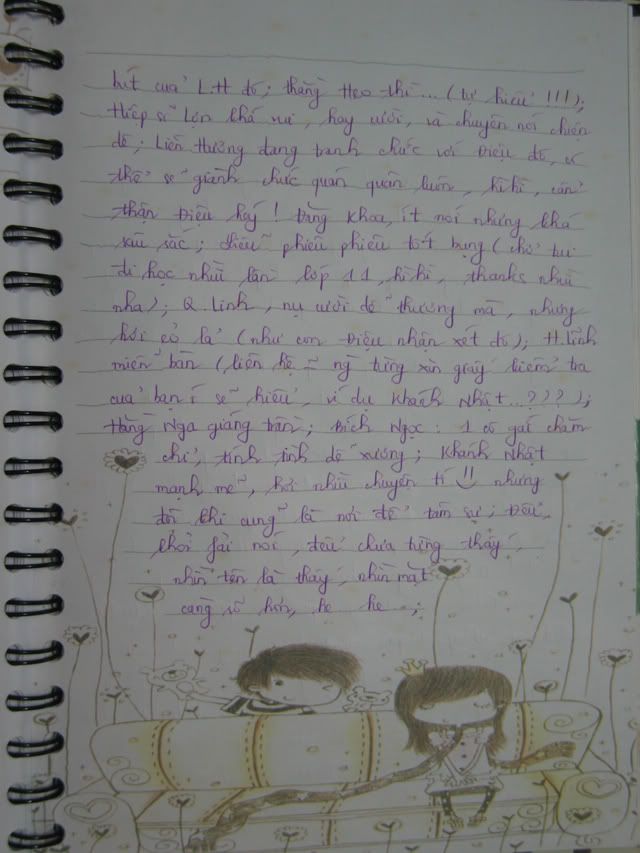 hít của L.H đó; thằng Heo thì...(tự hiểu !!!);
Hiệp sĩ Lợn khá vui, hay cười, và chuyên nói chiện
dê; Liên Hương đang tranh chức với Diệu đó, có
thể sẽ giành chức quán quân luôn, hì hì, cẩn
thận Diệu hấy! Đăng Khoa, ít nói nhưng khá
sâu sắc; Hiếu phiêu phiêu tốt bụng (chở tui
đi học nhìu lần lớp 11, hì hì, thanks nhìu
nha); Q. Linh, nụ cười dễ thương mà, nhưng
hơi cỏ lả (như con Diệu nhận xét đó); H. Linh
miễn bàn (liên hệ = ng từng xin giấy kiểm tra
của bạn í sẽ hiểu, ví dụ Khánh Nhật...???);
Hằng Nga giáng trần; Bích Ngọc: 1 cô gái chăm
chỉ, tính tình dễ xương; Khánh Nhật
mạnh mẽ, hơi nhìu chuyện tí !! nhưng
đôi khi cũng là nơi để tâm sự; Đều,
khỏi fải nói, đều chưa từng thấy,
nhìn tên là thấy, nhìn mặt
càng rõ hơn, he he;